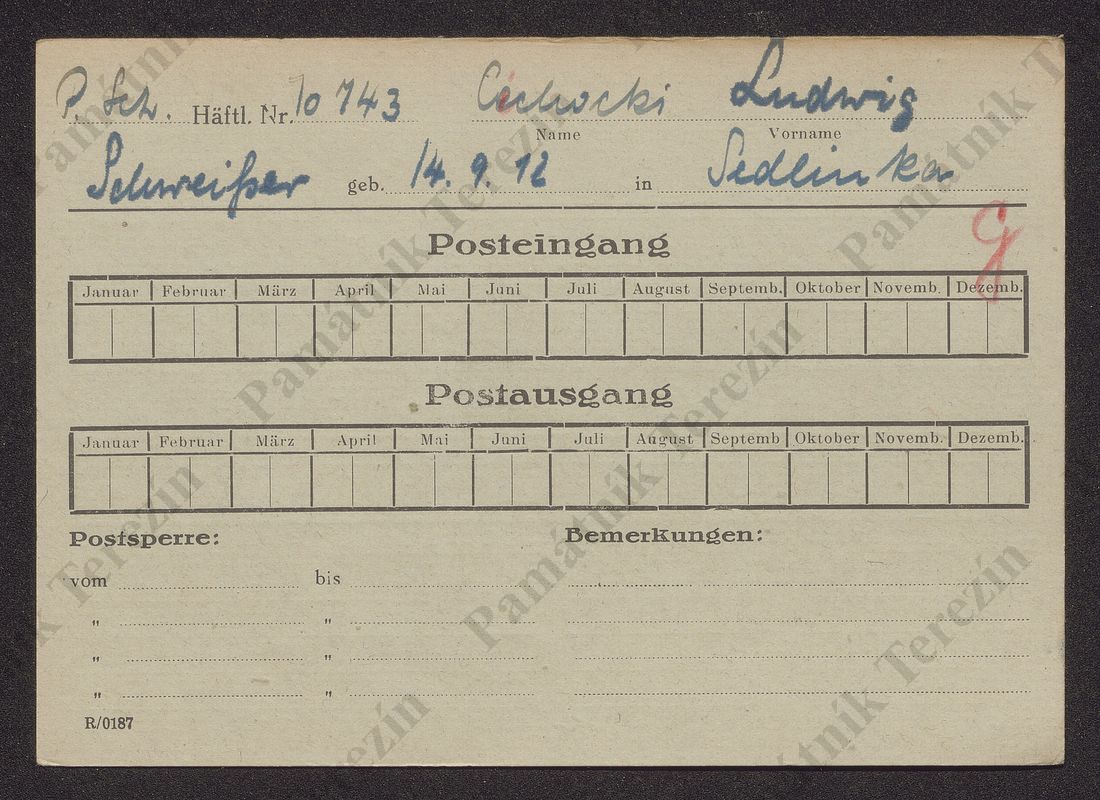 P. Sch. Häftl. Nr. 10 743 Cichocki Ludwig
Name Vorname
Schweißer geb. 14. 9. 12 in Sedlinka
G
Posteingang
Januar Februar März April Mai Juni Juli August Septemb. Oktober Novemb. Dezemb.
Postausgang
Januar Februar März April Mai Juni Juli August Septemb Oktober Novemb. Dezemb.
Postsperre: Bemerkungen:
vom bis
" "
" "
" "
R/0187
Památník Terezín